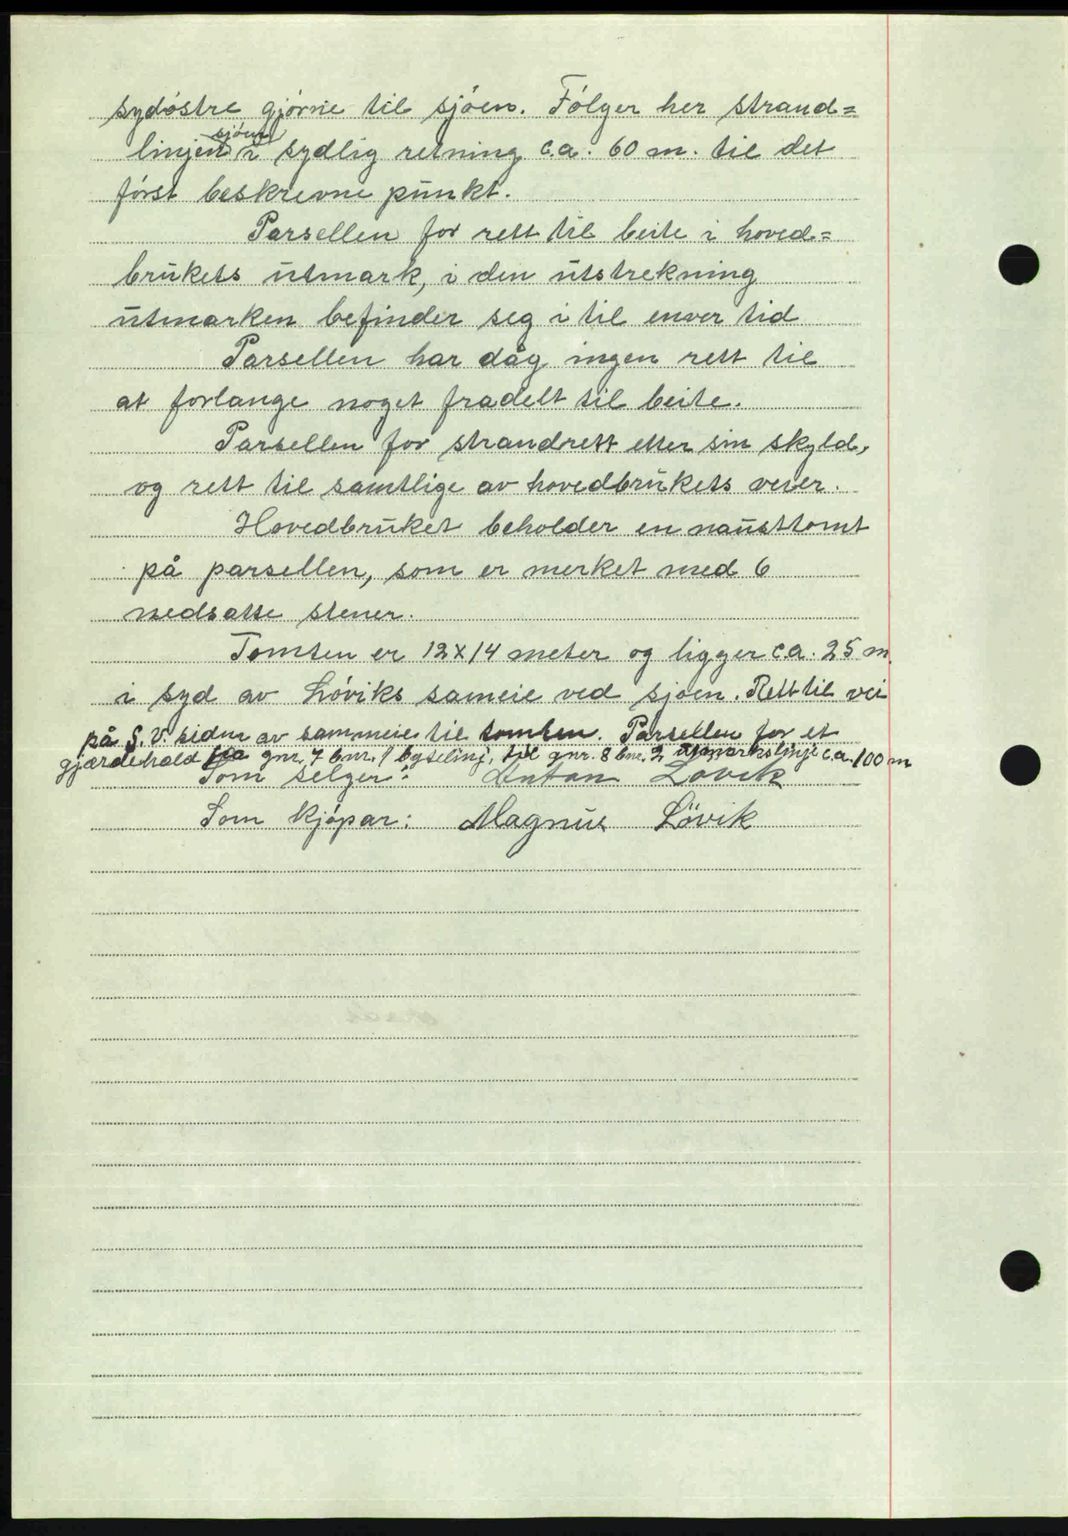 sydöstre gjörne til sjöen. Fölger her strand=
sjöen
linjen i sydlig retning c.a. 60 m. til det
först beskrevne punkt.
Parsellen for rett til beite i hoved=
brukets utmark, i den utstrekning
utmarken befinder seg i til enver tid
Parsellen har dåg ingen rett til
at forlange noget fradelt til beite.
Parsellen for strandrett etter sin skyld,
og rett til samtlige av hovedbrukets veier.
Hovedbruket beholder en nausttomt
på parsellen, som er merket med 6
nedsatte stener.
Tomten er 12x14 meter og ligger c.a. 25 m.
i syd av Löviks sameie ved sjöen. Rett til vei
på S.V. siden av sammeie til tomten. Parsellen for et
gjærdehold fra gnr. 7 bnr. 1 bytelinj. til gnr. 8 bnr. 2 c.a. 100 m
Som selger: Anton Lövik
Som kjöpar: Magnus Lövik